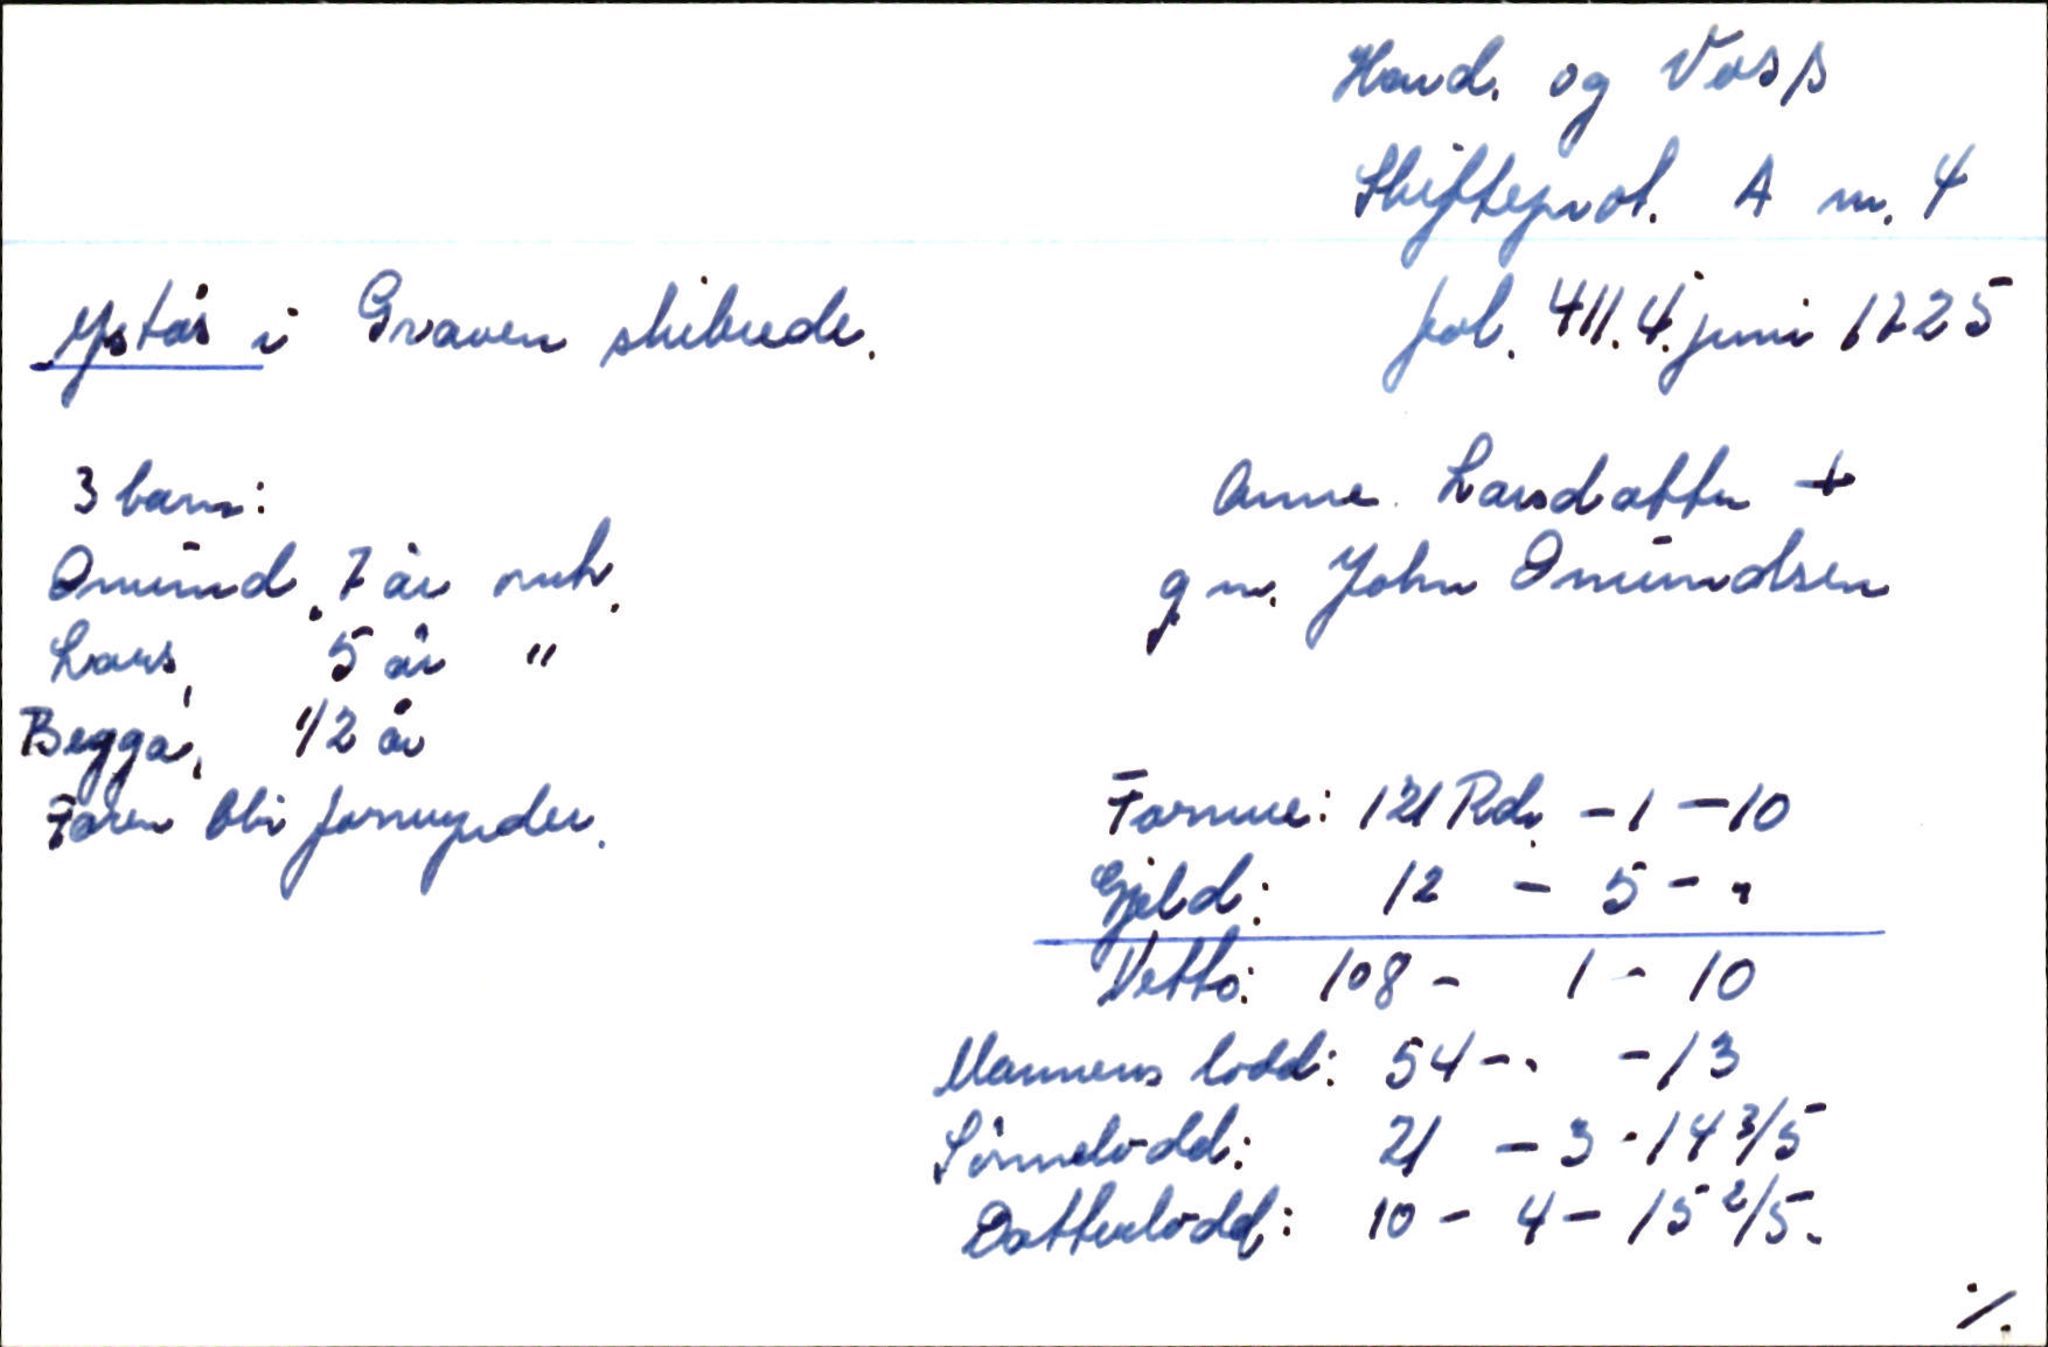 Hard. og Voss
Skifteprot. A nr. 4
fol. 411. 4. juni 1725
Ystås i Graven skibrede.
3 barn:
Omund, 7 år omk.
Lars, 5 år "
Begga, 1/2 år
Faren blir formynder.
Anne Larsdatter +
g m. John Omundsen
Formue: 121 Rd. - 1 - 10
Gjeld: 12 - 5 - "
Netto: 108 - 1 - 10
Mannens lodd: 54 - " - 13
Sönnelodd: 21 - 3 - 14 3/5
Datterlodd: 10 - 4 - 15 2/5.
./.